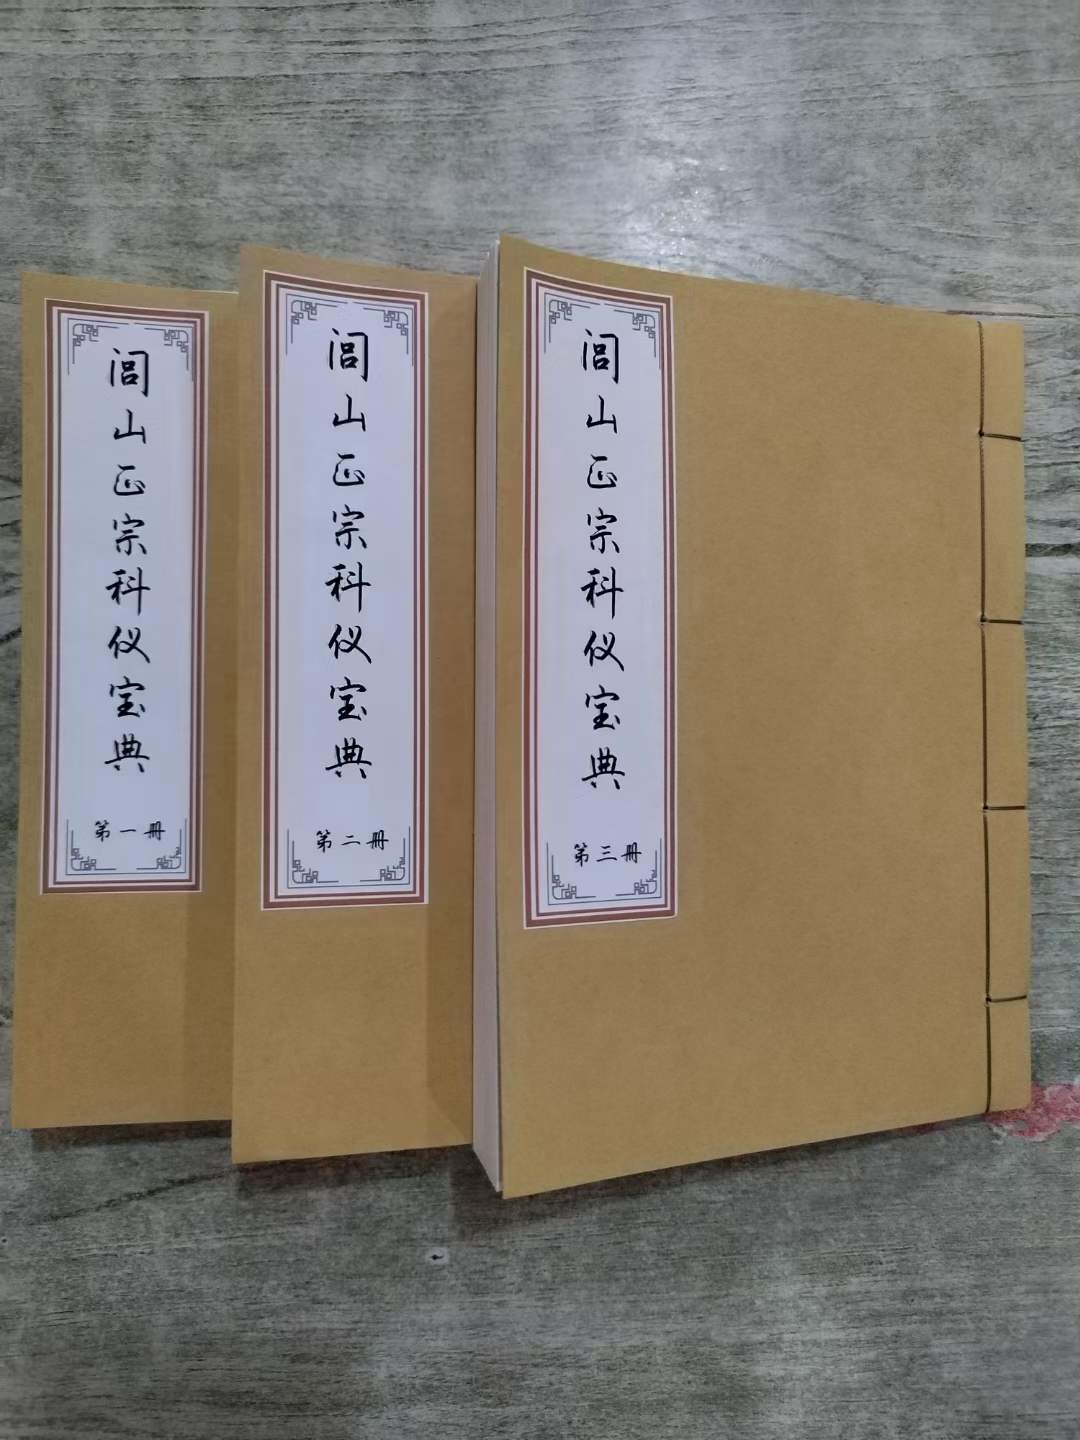 闾山正宗科仪宝典
第一册
闾山正宗科仪宝典
第二册
闾山正宗科仪宝典
第三册